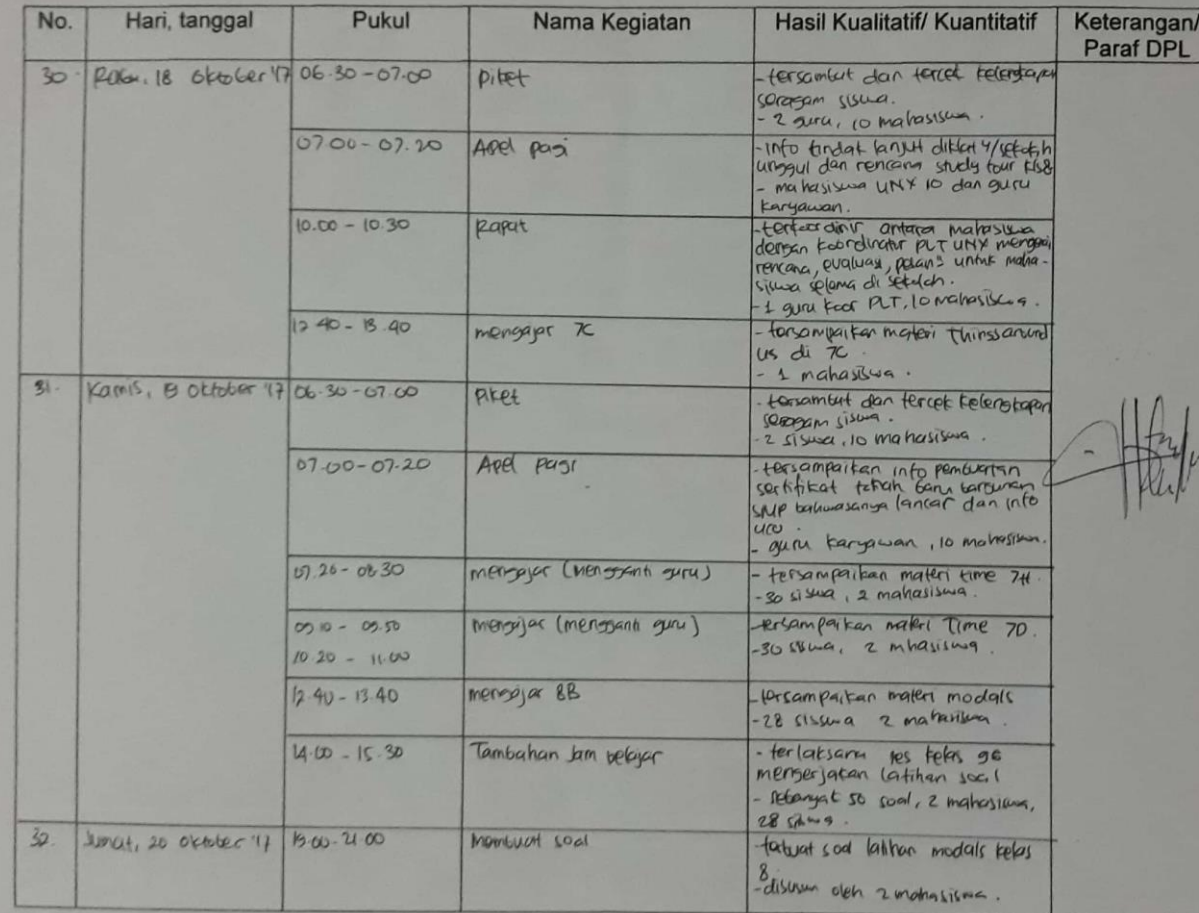 No. Hari, tanggal Pukul Nama Kegiatan Hasil Kualitatif/ Kuantitatif Keterangan/
Paraf DPL
30. Rabu, 18 Oktober '17 06.30 - 07.00 Piket - tersambut dan tercek kelengkapan
seragam siswa.
- 2 guru, 10 mahasiswa.
07.00 - 07.20 Apel pagi - info tindak lanjut diklat 4/sekolah
unggul dan rencana study tour kls 8
- mahasiswa UNY 10 dan guru
karyawan.
10.00 - 10.30 Rapat - terkoordinir antara mahasiswa
dengan koordinator PLT UNY mengenai
rencana, evaluasi, untuk maha-
siswa selama di sekolah.
- 1 guru koor PLT, 10 mahasiswa.
12.40 - 13.40 mengajar 7C - tersampaikan materi Things around
us di 7C.
- 1 mahasiswa.
31. Kamis, Oktober '17 06.30 - 07.00 Piket - tersambut dan tercek kelengkapan
seragam siswa.
- 2 siswa, 10 mahasiswa.
07.00 - 07.20 Apel pagi - tersampaikan info pembuatan
sertifikat baru bangunan
SMP bahwasanya lancar dan info
- guru karyawan, 10 mahasiswa.
07.20 - 08.30 mengajar (mengganti guru) - tersampaikan materi time 7H.
- 30 siswa, 2 mahasiswa.
09.10 - 09.50 mengajar (mengganti guru) - tersampaikan materi Time 7D.
10.20 - 11.00 - 30 siswa, 2 mhasiswa.
12.40 - 13.40 mengajar 8B - tersampaikan materi modals
- 28 sisswa 2 mahasiswa.
14.00 - 15.30 Tambahan Jam belajar - terlaksana les kelas
mengerjakan latihan soal
- sebanyak 50 soal, 2 mahasiswa,
28 siswa.
32. Jumat, 20 Oktober '17 19.00 - 21.00 Membuat soal - terbuat soal latihan modals kelas
8.
- disusun oleh 2 mahasiswa.